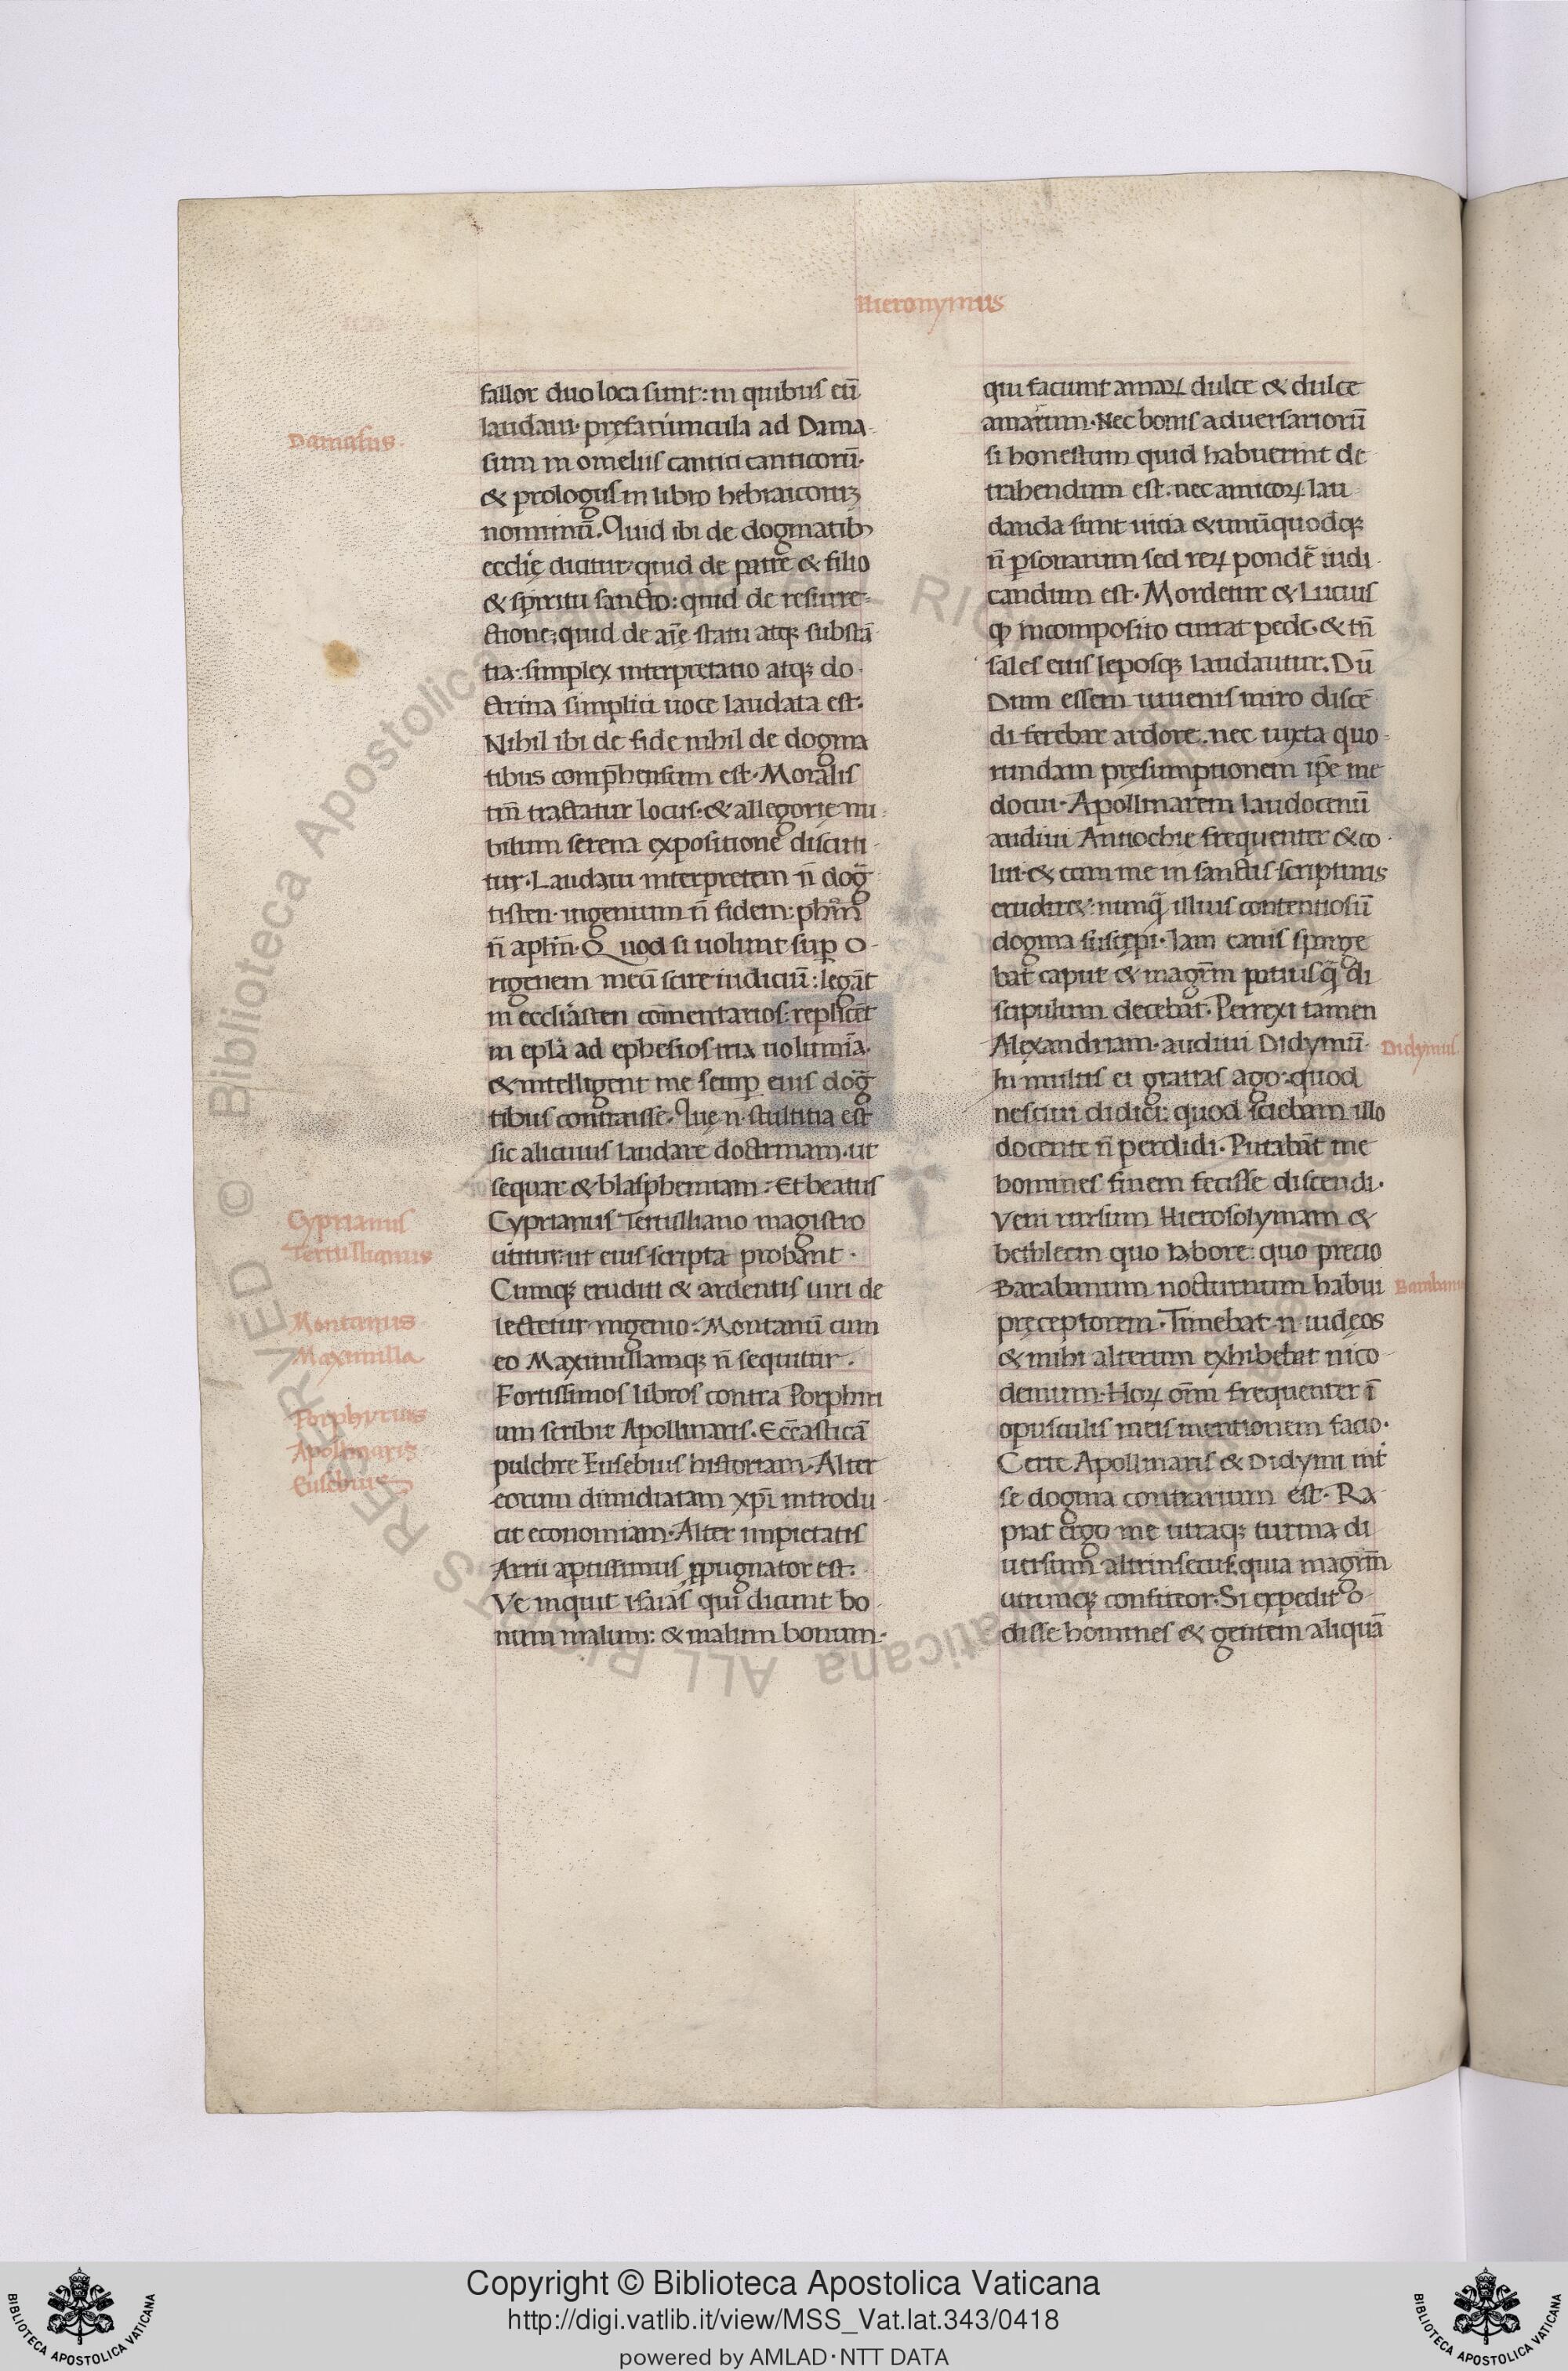 Hieronymus
fallor duo loca sunt: in quibus eū
laudaui. prefatiuncula ad Dama-
sum in omeliis cantici canticorū.
& prologus in libro hebraicorum
nominū. Quid ibi de dogmatib;
eccl̄ię dicitur: quid de patre & filio
& spiritu sancto: quid de resurre-
ctione: quid de aīe statu atq; substā
tia: simplex interpretatio atq; do-
ctrina simplici uoce laudata est.
Nihil ibi de fide nihil de dogma
tibus comp̄hensum est. Moralis
tm̄ tractatur locus. & allegorię nu-
bilum serena expositione discuti-
tur. Laudaui interpretem n̄ doḡ
tisten. ingenium n̄ fidem: ph̄m
n̄ aplm̄. Quod si uolunt sup̱ O-
rigenem meū scire iudiciū: legāt
in eccl̄iasten cōmentarios: replicēt
in epl̄a ad ephesios tria uolumīa.
& intelligent me semp̱ eius doḡ
tibus contraisse. Quę n. stultitia est
sic alicuius laudare doctrinam. ut
sequar & blasphemiam: Et beatus
Cyprianus Tertulliano magistro
utitur. ut eius scripta probant.
Cumq; eruditi & ardentis uiri de
lectetur ingenio: Montanū cum
eo Maximillamq; n̄ sequitur.
Fortissimos libros contra Porphiri
um scribit Apollinaris. Ecc̄asticā
pulchre Eusebius historiam. Alter
eorum dimidiatam xp̄i introdu-
cit economiam. Alter impietatis
Arrii apertissimus ꝓpugnator est.
Ve inquit isaias qui dicunt bo-
num malum: & malum bonum.
Damasus
Cyprianus
Tertullianus
Montanus
Maximilla
Porphyrius
Apollinaris
Eusebius
qui faciunt amarꝝ dulce & dulce
amarum. Nec bonis aduersariorū
si honestum quid habuerint de
trahendum est. nec amicoꝝ lau
danda sunt uicia & unūquodq;
n̄ p̱sonarum sed reꝝ pondē iudi-
candum est. Mordetur & Lucius
ꝙ incomposito currat pede. & tn̄
sales eius leposq; laudantur. Dū
Dum essem iuuenis miro discē
di ferebar ardore. nec iuxta quo-
rundam pręsumptionem ip̄e me
docui. Apollinarem laudocenū
audiui Antiochie frequenter & co-
lui. & cum me in sanctis scripturis
erudir&: nunq̄ illius contentiosū
dogma suscepi. Iam canis sparge
bat caput & magr̄m potiusq̄ di
scipulum decebat. Perrexi tamen
Alexandriam. audiui Didymū.
In multis ei gratias ago: quod
nesciui didici: quod sciebam illo
docente n̄ perdidi. Putabāt me
homines finem fecisse discendi.
Veni rursum Hierosolymam &
bethleem quo labore: quo precio
Barabanum nocturnum habui
pręceptorem. Timebat. n. iudęos
& mihi alterum exhibebat nico
demum. Hoꝝ om̄ frequenter ī
opusculis meis mentionem facio.
Certe Apollinaris & Didymi int̄
se dogma contrarium est. Ra-
piat ergo me utraq; turma di
uersum altrinsecus. quia magrm̄
utrumq; confiteor. Si expedit o-
disse homines & gentem aliquā
Didymus.
Copyright © Biblioteca Apostolica Vaticana
http://digi.vatlib.it/view/MSS_Vat.lat.343/0418
powered by AMLAD·NTT DATA
BIBLIOTECA APOSTOLICA VATICANA
BIBLIOTECA APOSTOLICA VATICANA